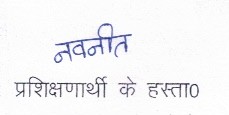 नवनीत
प्रशिक्षणार्थी के हस्ता0